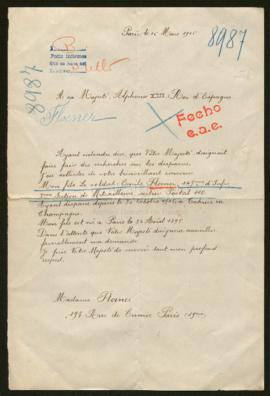 Paris le 15 Mars 1915
8987
B
Pedir informes
8987
A sa Majesté Alphonse XIII, Roi d'Espagne
Floener
Fecho
e.a.e.
Ayant entendu dire que Votre Majesté daignait
faire faire des recherches sur les disparus.
Je sollicite de votre bienveillant concours
Mon fils Le soldat: Emile 147ème d'Infie
Section de Mitrailleuses, secteur Postal
Ayant disparu depuis le 30 Octobre
Champagne.
Mon fils est né à Paris le 24 Août 1895.
Dans l'attente que Votre Majesté daignera accueillir
favorablement ma demande
Je prie Votre Majesté de recevoir tout mon profond
respect.
Madame
194 Rue de Crimée Paris 19ème